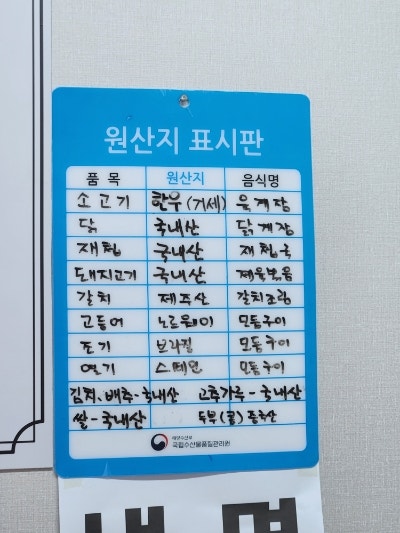 원산지 표시판
품 목 원산지 음식명
소고기 한우 (거세) 육계장
닭 국내산 닭계장
재첩 국내산 재첩국
돼지고기 국내산 제육볶음
갈치 제주산 갈치조림
고등어 노르웨이 모듬구이
조기 브라질 모듬구이
연기 스페인 모듬구이
김치, 배추-국내산 고추가루-국내산
쌀-국내산 두부(콩) 중국산
해양수산부
국립수산물품질관리원
냉면